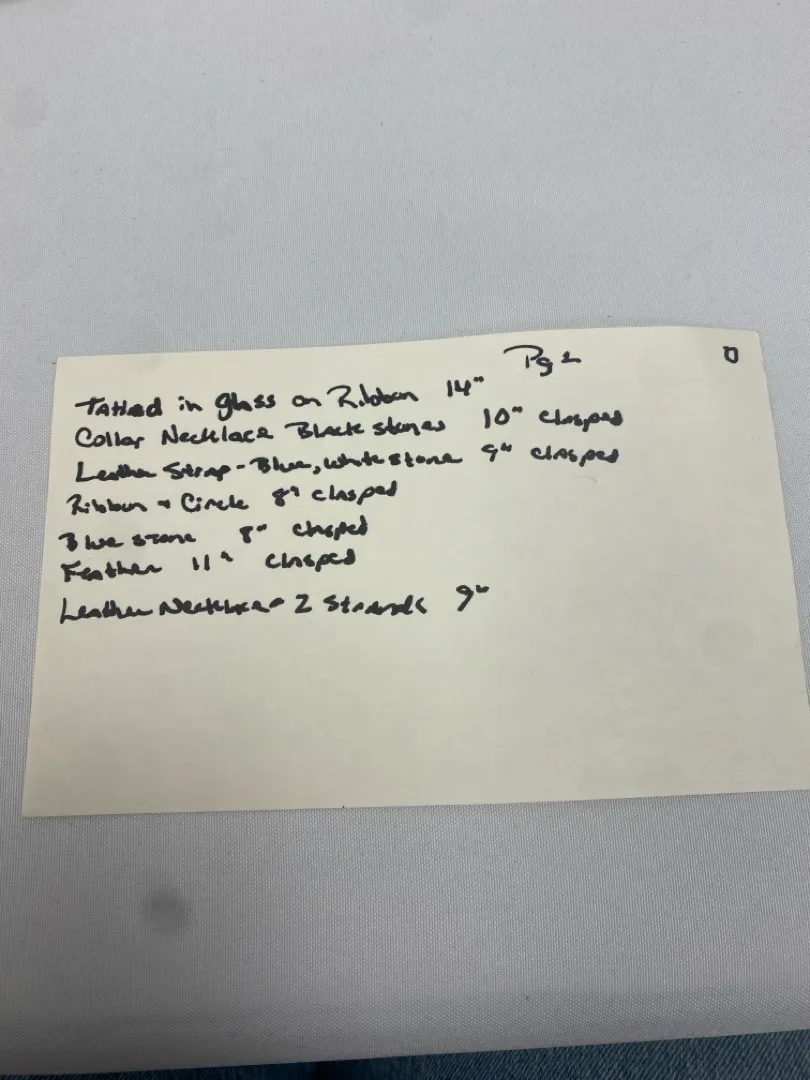 Pg 2
Tatted in glass on Ribbon 14"
Collar Necklace Black stones 10" clasped
Leather Strap - Blue, white stone 9" clasped
Ribbon + Circle 8" clasped
Blue stone 8" clasped
Feather 11" clasped
Leather Necklace 2 Strands 9"